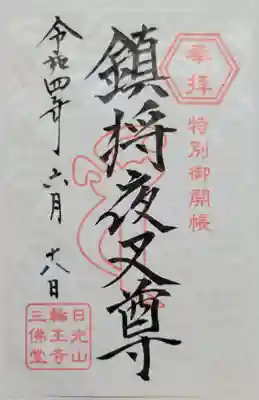 奉拝
特別御開帳
鎮将夜叉尊
令和四年六月十八日
日光山
輪王寺
三佛堂